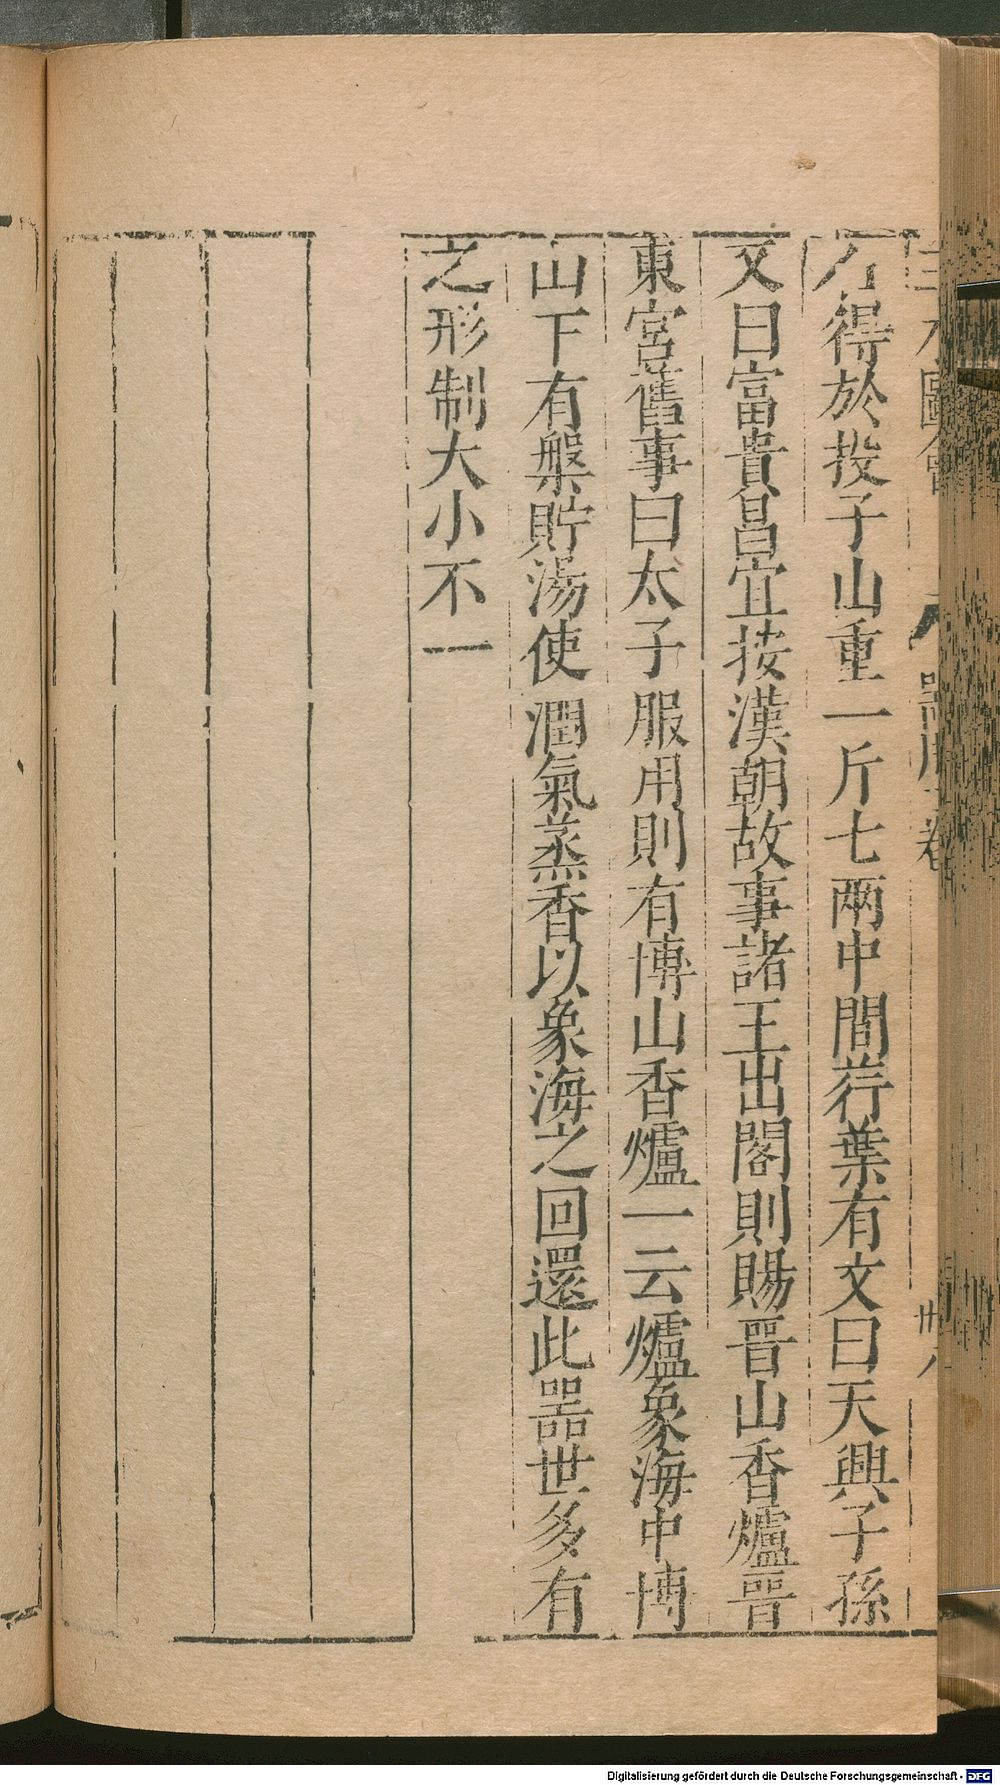 三才圖會 器用十二卷 卅八
右得於投子山重一斤七兩中間荇葉有文曰天興子孫
又曰富貴昌宜按漢朝故事諸王出閣則賜晋山香爐晋
東宮舊事曰太子服用則有博山香爐一云爐象海中博
山下有槃貯湯使潤氣蒸香以象海之回還此噐世多有
之形制大小不一
Digitalisierung gefördert durch die Deutsche Forschungsgemeinschaft - DFG